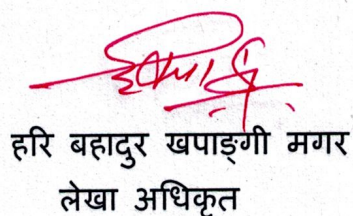 हरि बहादुर खपाङ्गी मगर
लेखा अधिकृत